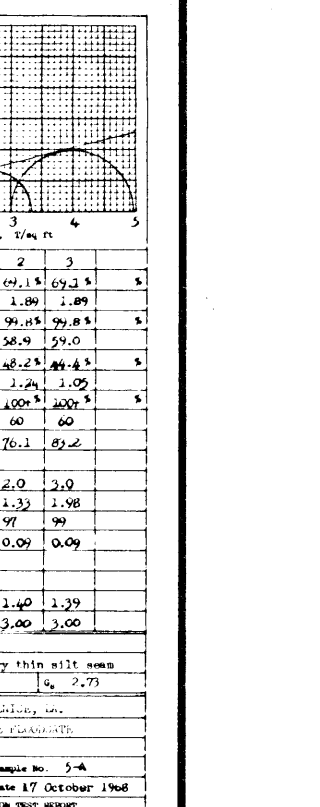 3 4 5
T/sq ft
2 3
69.1 % 69.1 % %
1.89 1.89
99.8 % 99.8 % %
58.9 59.0
48.2 % 44.4 % %
1.24 1.05
100+ % 100+ % %
60 60
76.1 83.2
2.0 3.0
1.33 1.98
97 99
0.09 0.09
1.40 1.39
3.00 3.00
thin silt seam
Gs 2.73
LA.
No. 5-A
17 October 1968
TEST REPORT